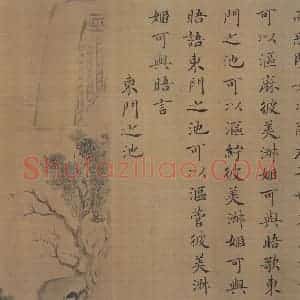 可以漚麻彼美淑姬可與晤歌東
門之池可以漚紵彼美淑姬可與
晤語東門之池可以漚菅彼美淑
姬可與晤言
東門之池
Shufaziliao.COM